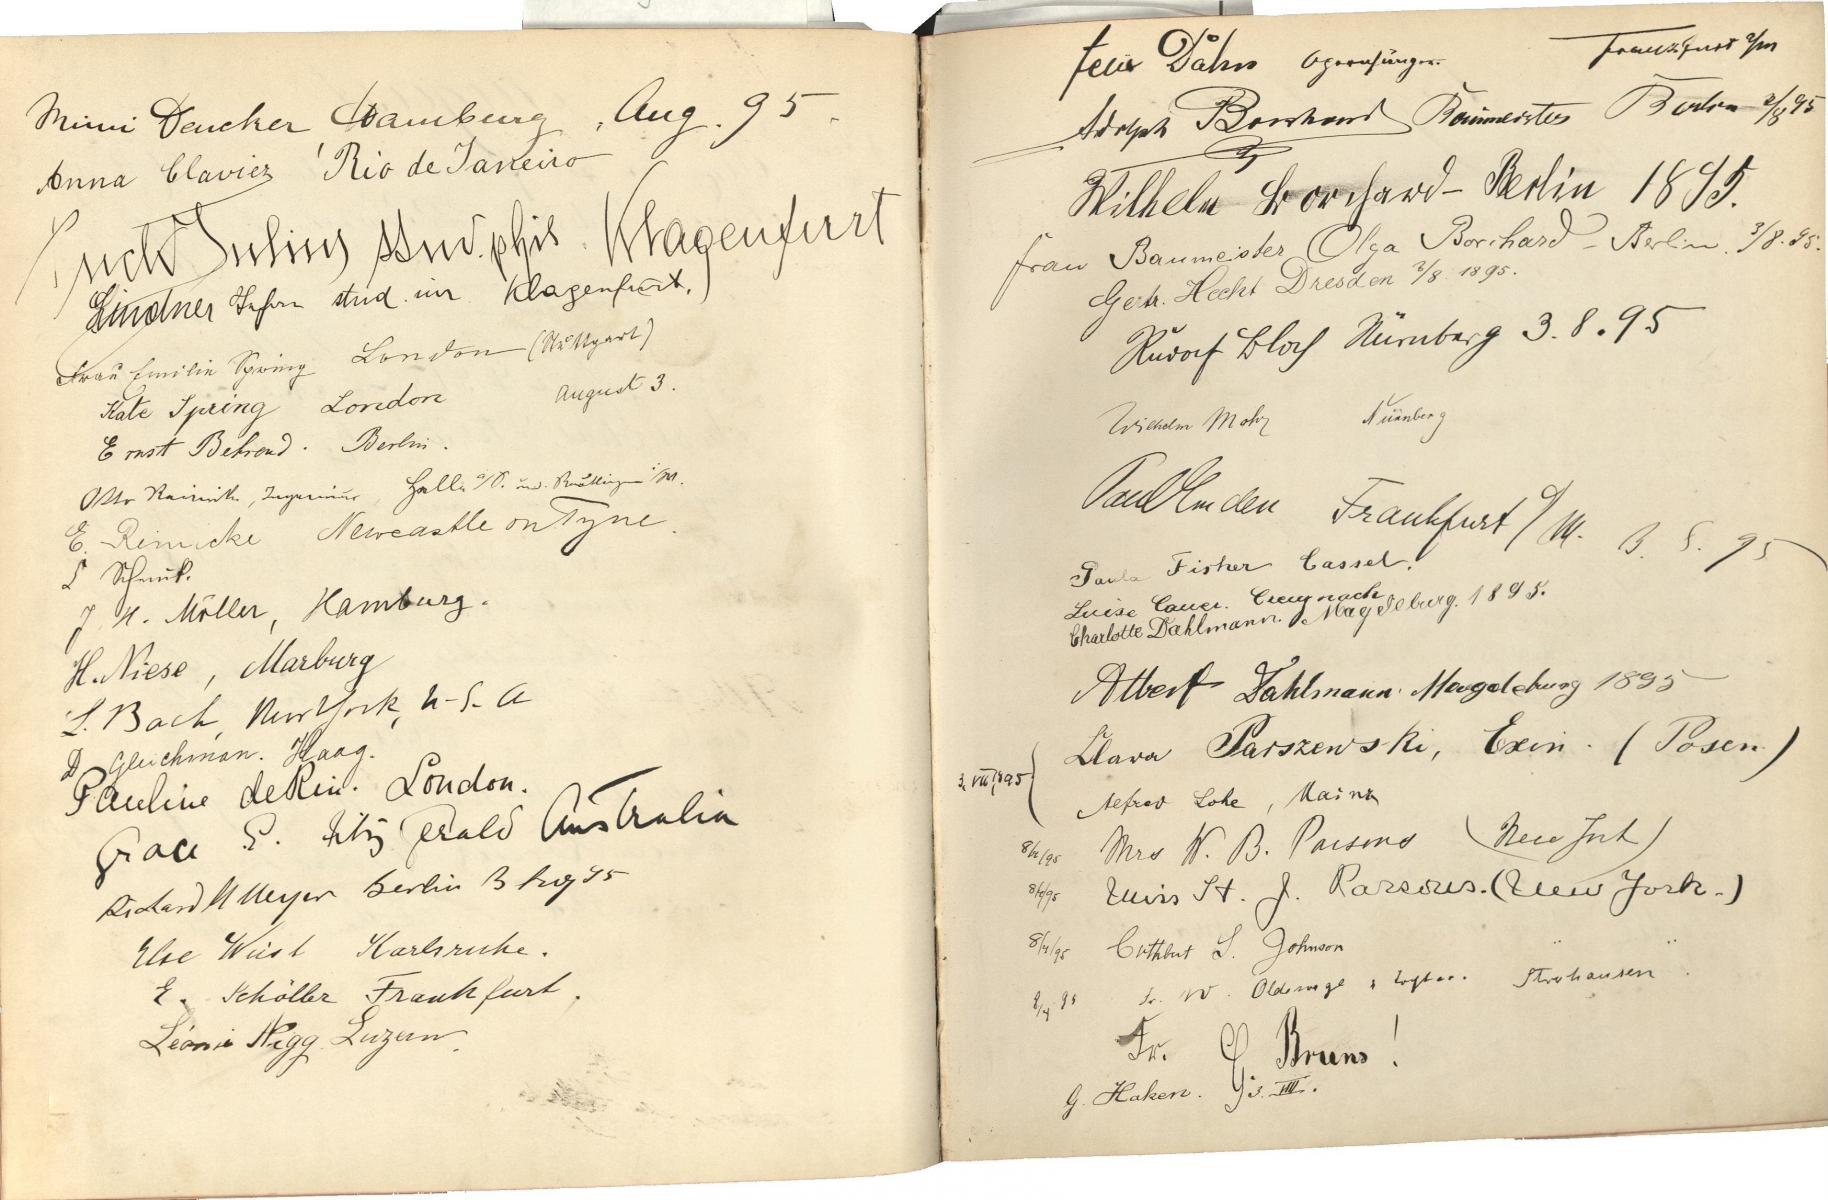 Mimi Dencker Hamburg, Aug. 95.
Anna Claviez Rio de Janeiro
Erich Julius stud. phil. Klagenfurt
Lindner stud. iur. Klagenfurt.)
Frau Emilie Spring London (Stuttgart)
Kate Spring London August 3.
Ernst Behrend. Berlin.
Otto Ingenieur, Halle a/S. und
E. Reinicke Newcastle on Tyne.
J. H. Möller, Hamburg.
H. Niese, Marburg
L. Bach, New York, U-S. A
D Gleichman. Haag.
Pauline deRin. London.
Grace E. Fitz Gerald Australia
Richard M Meyer Berlin 3 Aug 95
Else Wüst Karlsruhe.
E. Schöller Frankfurt.
Léonie Nigg Luzern
Felix Dahn Opernsänger Frankfurt a/m
Adolph Borchard Baumeister Berlin 3/8 95
Wilhelm Borchard - Berlin 1895.
Frau Baumeister Olga Borchard - Berlin. 3/8. 95.
Gertr. Hecht Dresden 3/8. 1895.
Rudolf Bloch Nürnberg 3.8.95
Wilhelm Mohr Nürnberg
Paul Emden Frankfurt a/M. 3. 8. 95
Paula Fisher Cassel.
Luise Cauer. Creuznach
Charlotte Dahlmann. Magdeburg. 1895.
Albert Dahlmann Magdeburg 1895
Clara Parszewski, Exin. (Posen)
3. VIII. 1895
Alfred Lohe, Mainz
8/4/95 Mrs W. B. Parsons (New York)
8/4/95 Miss St. J. Parsons. (New York.)
8/4/95 Cuthbert S. Johnson
8/4 95 Fr. W. Strohausen.
Fr. G Bruns!
G. Haken. 3. VIII.